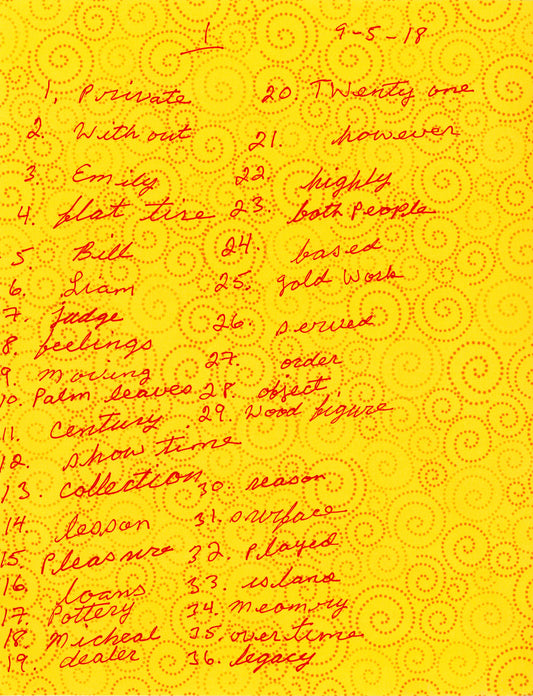 1
9-5-18
1. Private
2. With out
3. Emily
4. flat tire
5. Bill
6. Liam
7. Judge
8. feelings
9. moving
10. Palm leaves
11. Century
12. show time
13. collection
14. lesson
15. Pleasure
16. loans
17. Pottery
18. Micheal
19. dealer
20. TWenty one
21. however
22. highly
23. both People
24. based
25. gold Work
26. served
27. order
28. object
29. Wood figure
30. reason
31. surface
32. Played
33. island
34. Meomry
35. over time
36. legacy